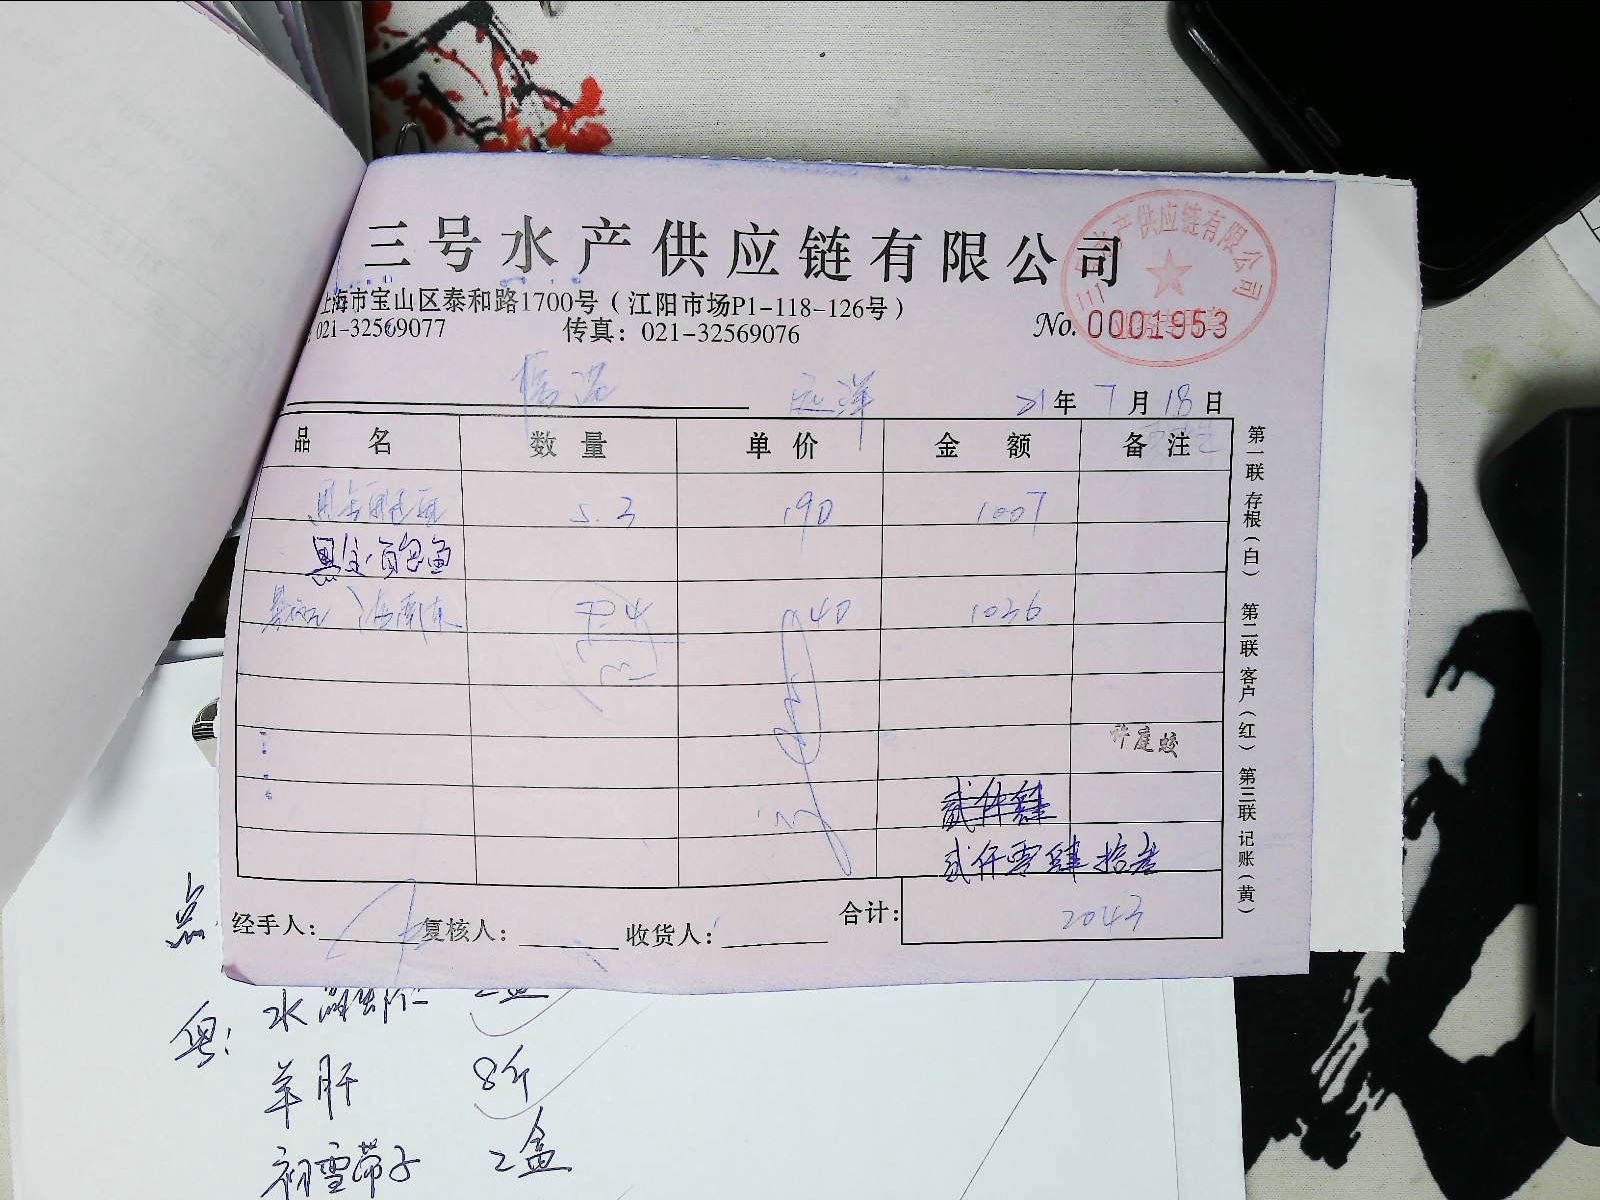 三号水产供应链有限公司
上海市宝山区泰和路1700号（江阳市场P1-118-126号）
021-32569077 传真：021-32569076
No. 0001953
水产供应链有限公司
临港 远洋 21年 7月 18日
品名 数量 单价 金额 备注
5.3 190 1007
黑金鲍鱼
海南 40 1036
许庭蛟
贰仟肆
贰仟零肆拾叁
经手人： 复核人： 收货人： 合计： 2043
第一联 存根（白） 第二联 客户（红） 第三联 记账（黄）
点
粤： 水晶虾仁 2盒
羊肝 8斤
初雪带子 2盒